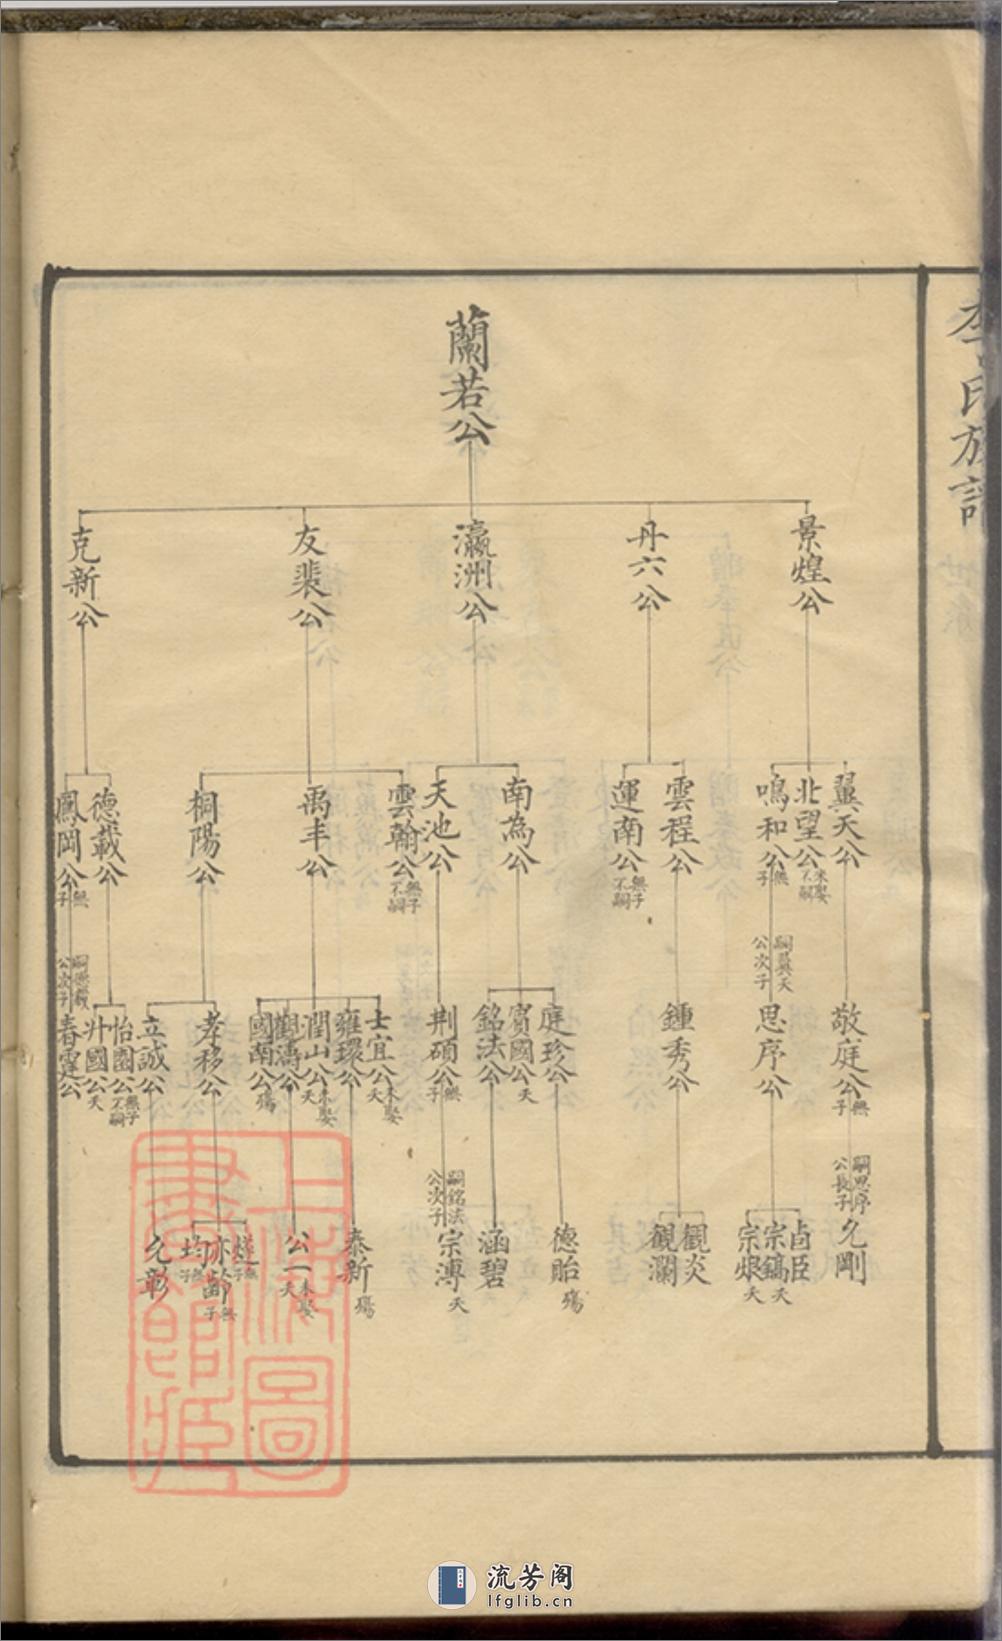 李氏族譜
世系
蘭若公
景煌公
丹六公
瀛洲公
友裴公
克新公
翼天公
北望公 未娶不嗣
鳴和公 無子
雲程公
運南公 無子不嗣
南為公
天池公
雲翰公 無子不嗣
禹丰公
桐陽公
德載公
鳳岡公 無子
敬庭公 無子
嗣翼天公次子
思序公
鍾秀公
庭珍公
賓國公 夭
銘法公
荆碩公 無子
士宜公 未娶夭
雍環公
潤山公 未娶夭
觀濤公
國南公 殤
孝移公
立誠公
怡園公 無子不嗣
升國公 夭
嗣德載公次子
春霆公
嗣思序公長子
允剛
卣臣
宗鎬 夭
宗烺 夭
觀炎
觀瀾
德貽 殤
涵碧
嗣銘法公次子
宗溥 夭
泰新 殤
公一 未娶夭
燧 無子
亦齡 無子
均 無子
允彰
上海圖書館藏
流芳阁
lfglib.cn